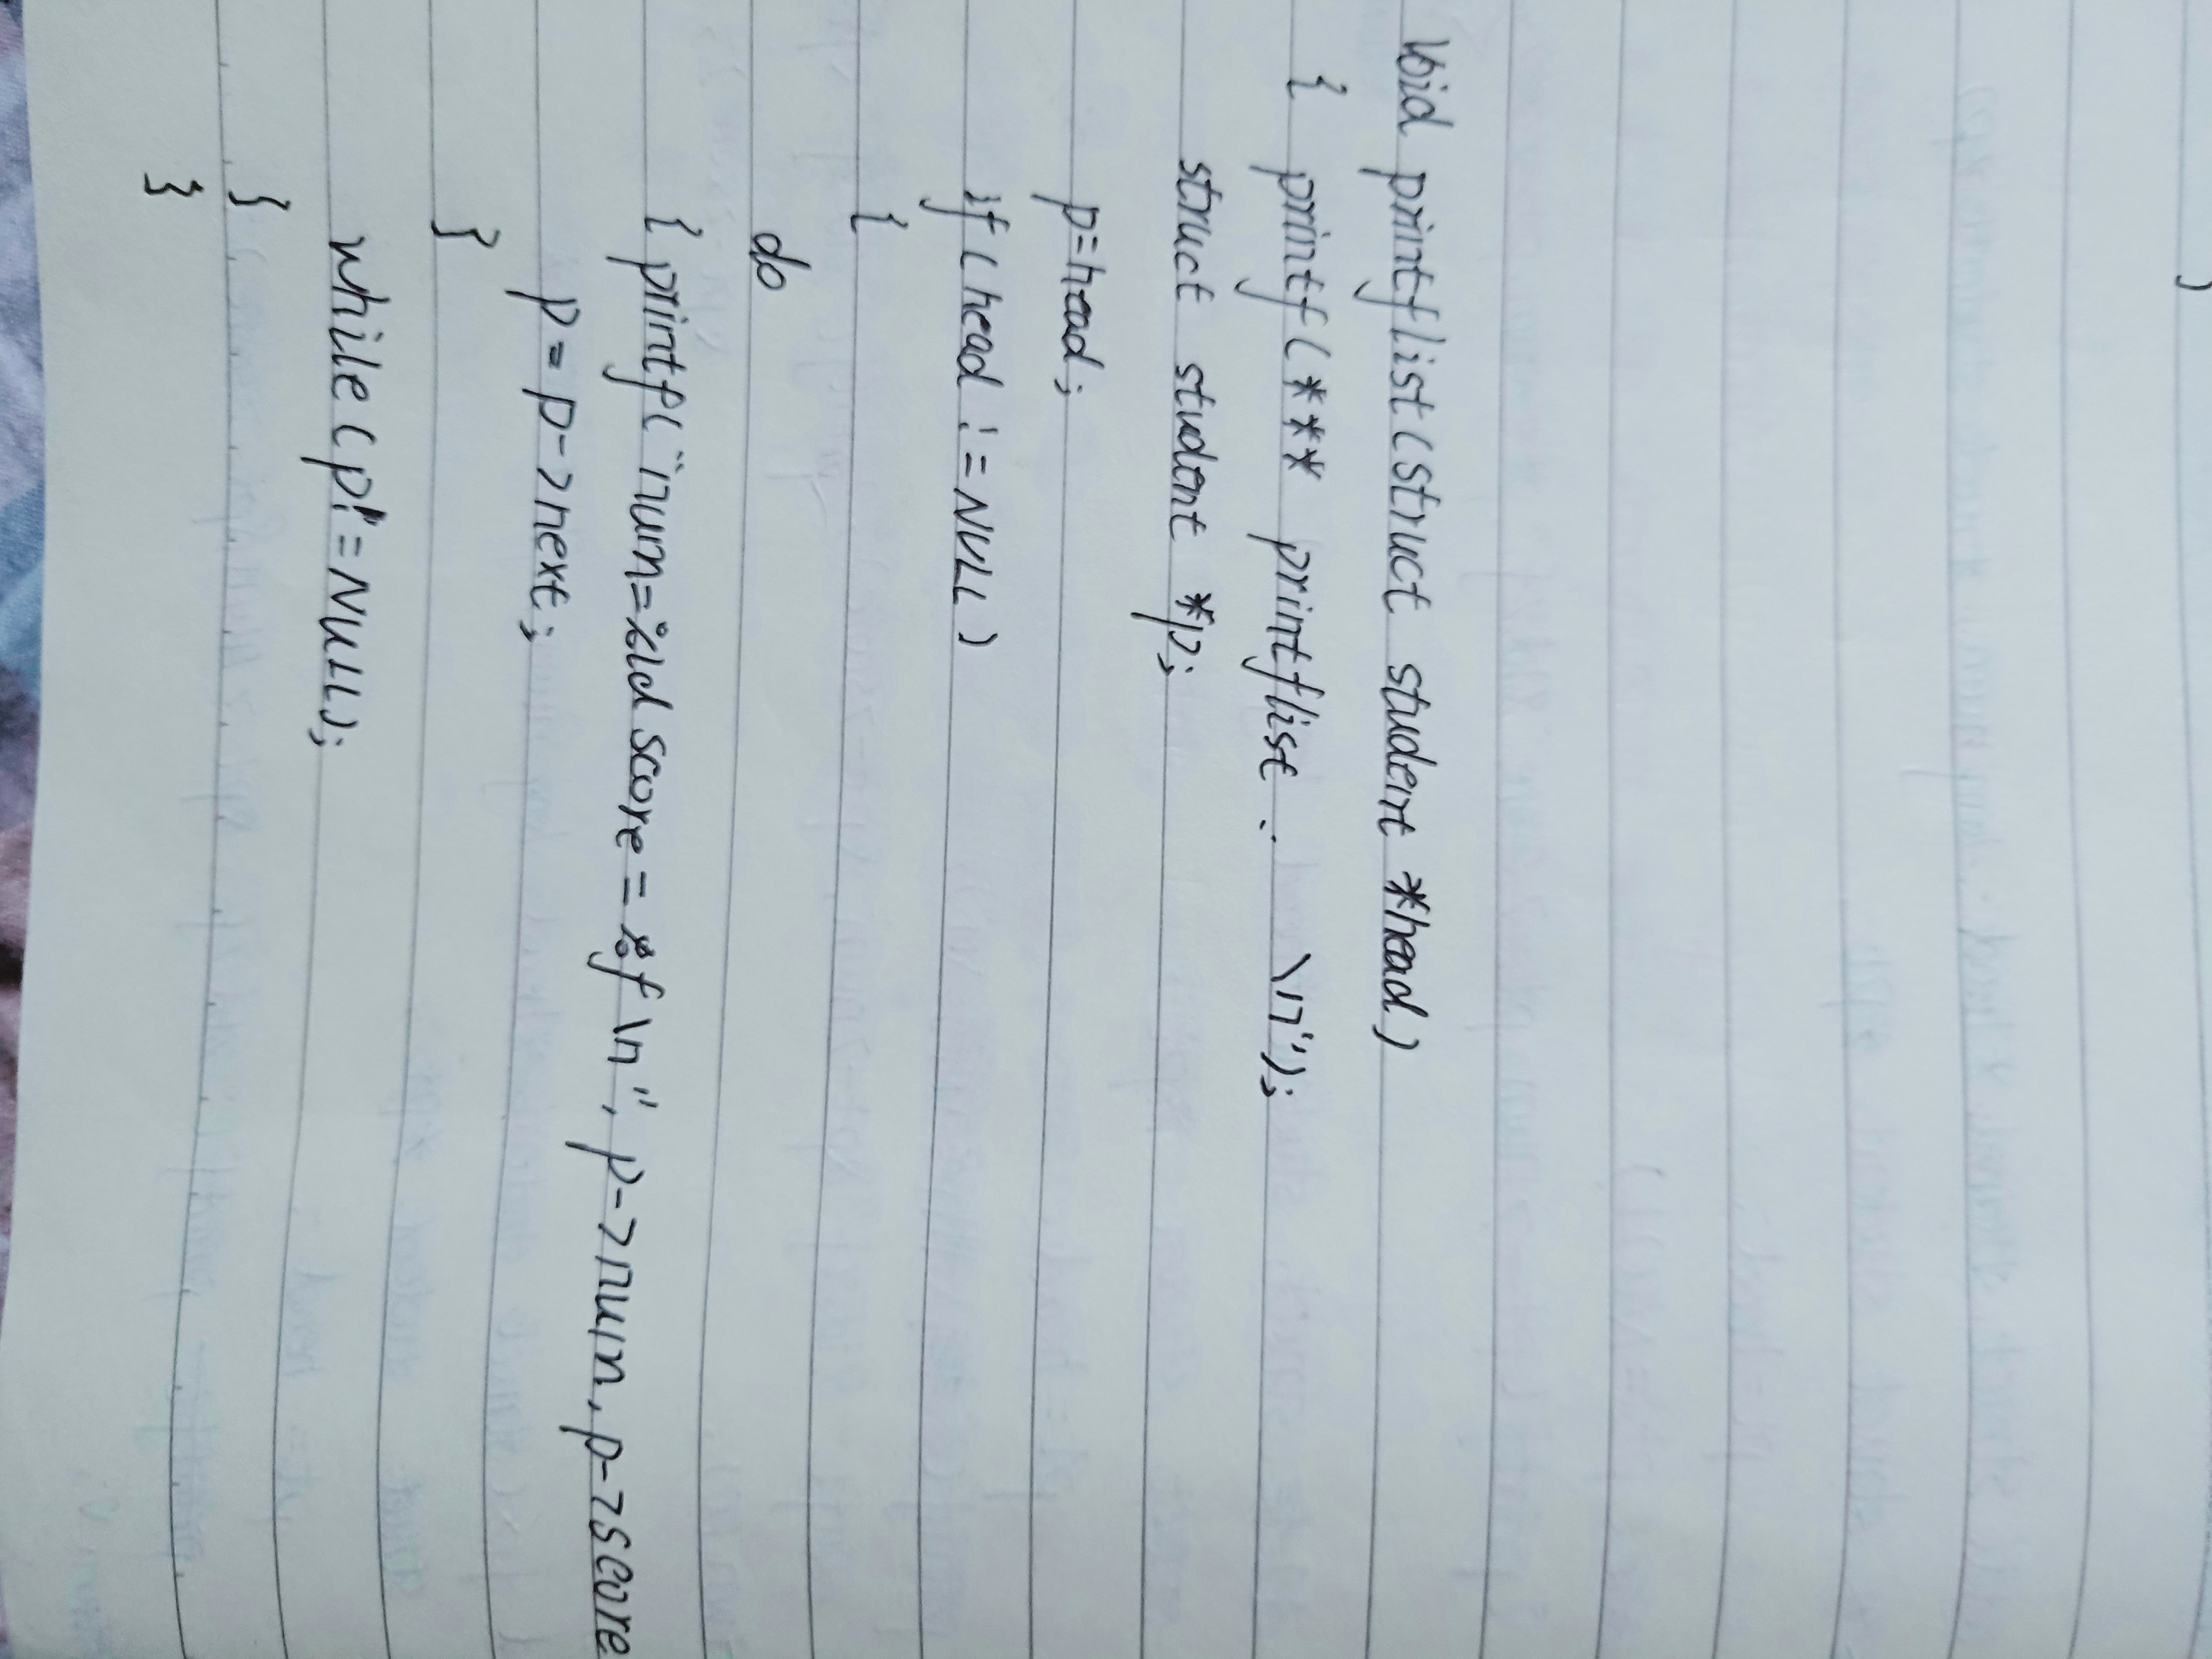 void printflist(struct student *head)
{ printf(*** printflist : \n");
struct student *p;
p=head;
if(head != NULL)
{
do
{ printf("num=%ld score=%f\n", p->num, p->score
p = p->next;
}
while(p!=NULL);
}
}